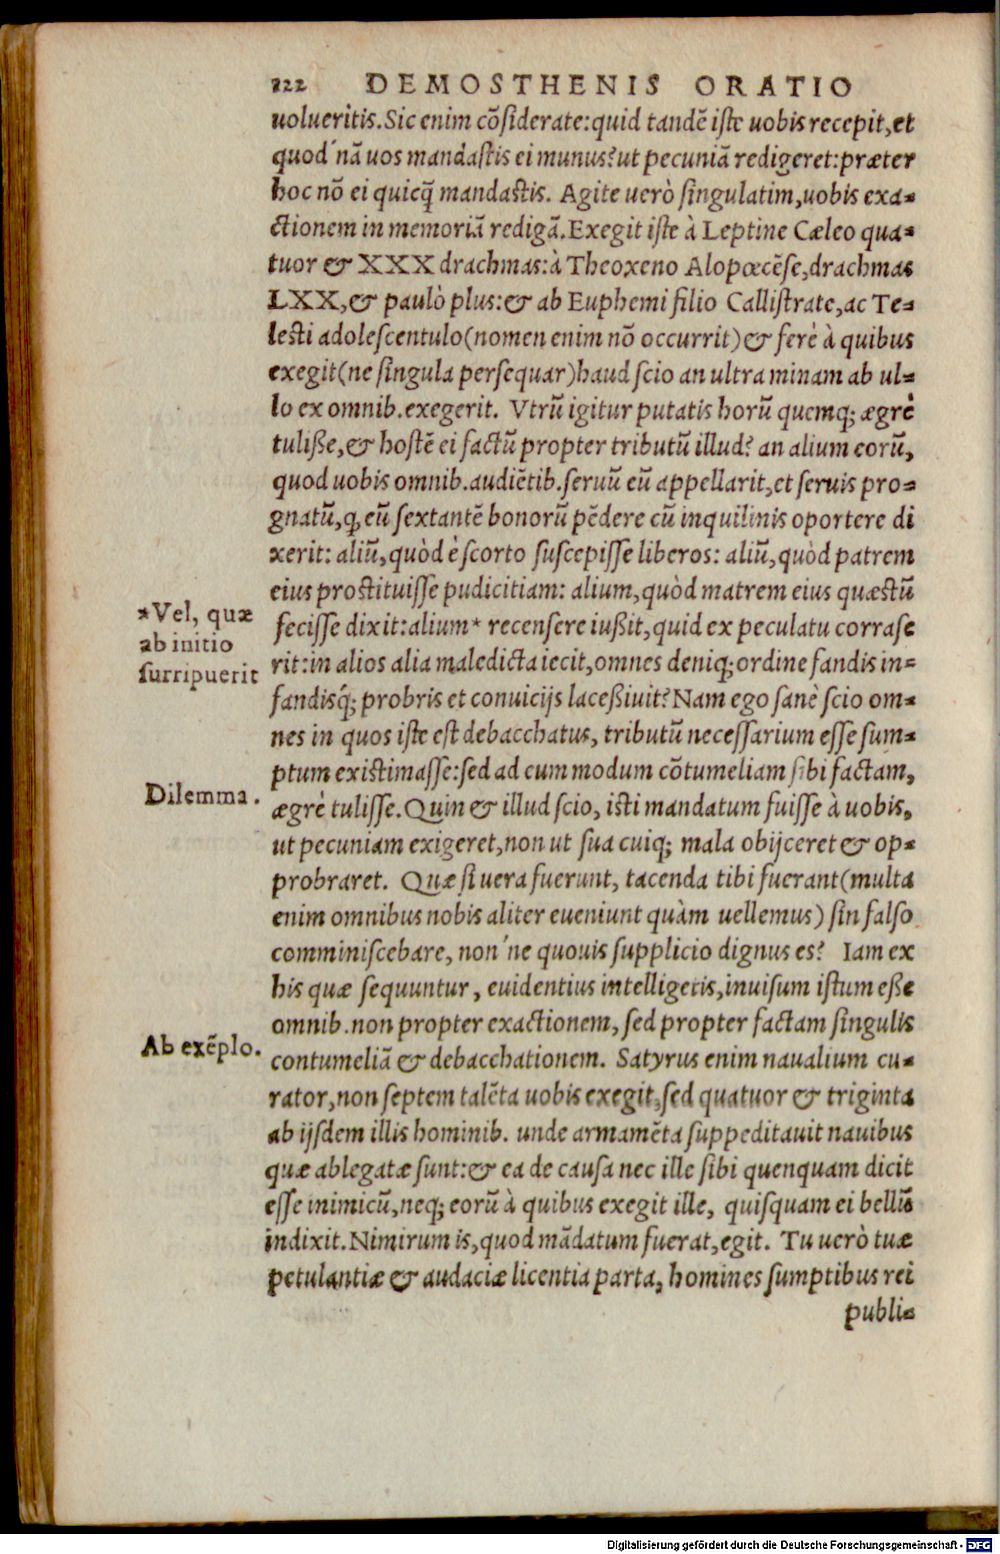 122 DEMOSTHENIS ORATIO
uolueritis. Sic enim cõsiderate: quid tandẽ iste uobis recepit, et
quod´nã uos mandastis ei munus? ut pecuniã redigeret: præter
hoc nõ ei quicq̃ mandastis. Agite uerò singulatim, uobis exa-
ctionem in memoriã redigã. Exegit iste à Leptine Cæleo qua-
tuor & XXX drachmas: à Theoxeno Alopœcẽse, drachmas
LXX, & paulò plus: & ab Euphemi filio Callistrate, ac Te-
lesti adolescentulo (nomen enim nõ occurrit) & ferè à quibus
exegit (ne singula persequar) haud scio an ultra minam ab ul-
lo ex omnib. exegerit. Vtrũ igitur putatis horũ quemq; ægrè
tuliße, & hostẽ ei factũ propter tributũ illud? an alium eorũ,
quod uobis omnib. audiẽtib. seruũ eũ appellarit, et seruis pro-
gnatũ, q, eũ sextantẽ bonorũ pẽdere cũ inquilinis oportere di
xerit: aliũ, quòd è scorto suscepisse liberos: aliũ, quòd patrem
eius prostituisse pudicitiam: alium, quòd matrem eius quæstũ
fecisse dixit: alium* recensere iußit, quid ex peculatu corrase
*Vel, quæ
ab initio
surripuerit
rit: in alios alia maledicta iecit, omnes deniq; ordine fandis in-
fandisq́; probris et conuicijs laceßiuit? Nam ego sanè scio om-
nes in quos iste est debacchatus, tributũ necessarium esse sum-
ptum existimasse: sed ad cum modum cõtumeliam sibi factam,
Dilemma.
ægrè tulisse. Quin & illud scio, isti mandatum fuisse à uobis,
ut pecuniam exigeret, non ut sua cuiq; mala obijceret & op-
probraret. Quæ si uera fuerunt, tacenda tibi fuerant (multa
enim omnibus nobis aliter eueniunt quàm uellemus) sin falso
comminiscebare, non´ne quouis supplicio dignus es? Iam ex
his quæ sequuntur, euidentius intelligetis, inuisum istum eße
omnib. non propter exactionem, sed propter factam singulis
Ab exẽplo.
contumeliã & debacchationem. Satyrus enim naualium cu-
rator, non septem talẽta uobis exegit, sed quatuor & triginta
ab ijsdem illis hominib. unde armamẽta suppeditauit nauibus
quæ ablegatæ sunt: & ea de causa nec ille sibi quenquam dicit
esse inimicũ, neq; eorũ à quibus exegit ille, quisquam ei bellũ
indixit. Nimirum is, quod mãdatum fuerat, egit. Tu uerò tuæ
petulantiæ & audaciæ licentia parta, homines sumptibus rei
publi-
Digitalisierung gefördert durch die Deutsche Forschungsgemeinschaft - DFG